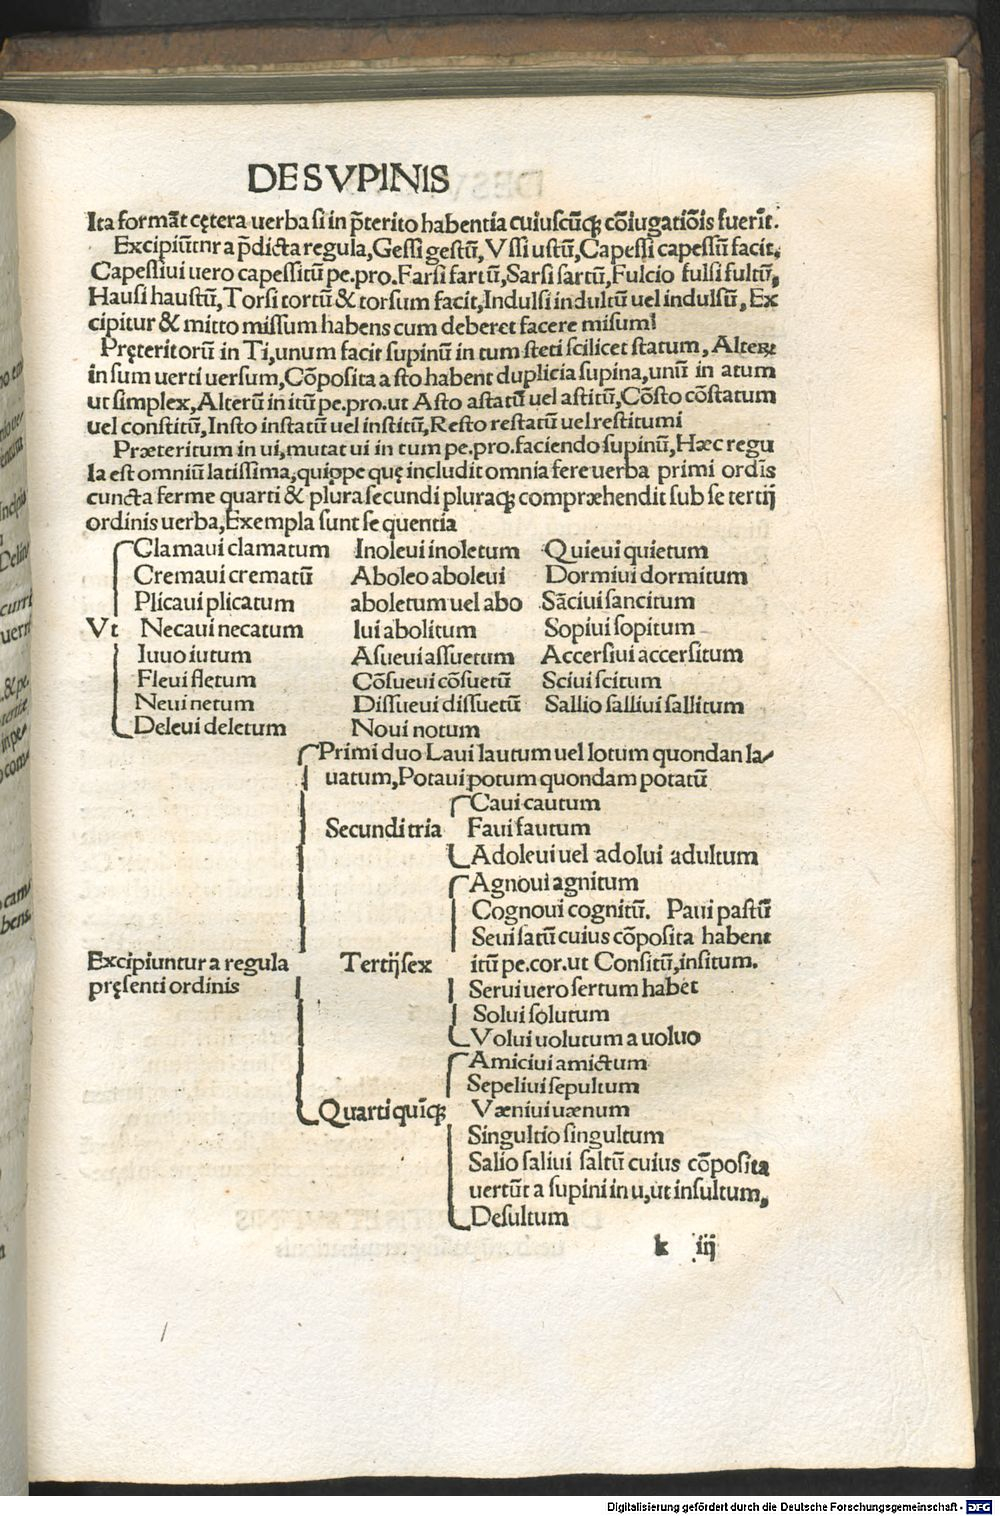 DE SVPINIS
Ita formāt cętera uerba si in p̄terito habentia cuiuscūq; cōiugatiōis fuerīt.
Excipiūtnr a p̄dicta regula, Gessi gestū, Vssi ustū, Capessi capessū facit,
Capessiui uero capessitū pe.pro. Farsi fartū, Sarsi sartū, Fulcio fulsi fultū,
Hausi haustū, Torsi tortū & torsum facit, Indulsi indultū uel indulsū, Ex
cipitur & mitto missum habens cum deberet facere misum!
Pręteritorū in Ti, unum facit supinū in tum steti scilicet statum, Alterꝝ
in sum uerti uersum, Cōposita a sto habent duplicia supina, unū in atum
ut simplex, Alterū in itū pe.pro. ut Asto astatū uel astitū, Cōsto cōstatum
uel constitū, Insto instatū uel institū, Resto restatū uel restitumi
Præteritum in ui, mutat ui in tum pe.pro. faciendo supinū, Hæc regu
la est omniū latissima, quippe quę includit omnia fere uerba primi ordīs
cuncta ferme quarti & plura secundi pluraq; compræhendit sub se tertij
ordinis uerba, Exempla sunt sequentia
Clamaui clamatum Inoleui inoletum Quieui quietum
Cremaui crematū Aboleo aboleui Dormiui dormitum
Plicaui plicatum aboletum uel abo Sāciui sancitum
Vt Necaui necatum lui abolitum Sopiui sopitum
Iuuo iutum Asueui assuetum Accersiui accersitum
Fleui fletum Cōsueui cōsuetū Sciui scitum
Neui netum Dissueui dissuetū Sallio salliui sallitum
Deleui deletum Noui notum
Primi duo Laui lautum uel lotum quondan la
uatum, Potaui potum quondam potatū
Caui cautum
Secundi tria Faui fautum
Adoleui uel adolui adultum
Agnoui agnitum
Cognoui cognitū. Paui pastū
Seui satū cuius cōposita habent
Excipiuntur a regula Tertij sex itū pe.cor. ut Consitū, insitum.
pręsenti ordinis Serui uero sertum habet
Solui solutum
Volui uolutum a uoluo
Amiciui amictum
Sepeliui sepultum
Quarti quīq; Væniui uænum
Singultio singultum
Salio saliui saltū cuius cōposita
uertūt a supini in u, ut insultum,
Desultum
k iij
Digitalisierung gefördert durch die Deutsche Forschungsgemeinschaft - DFG